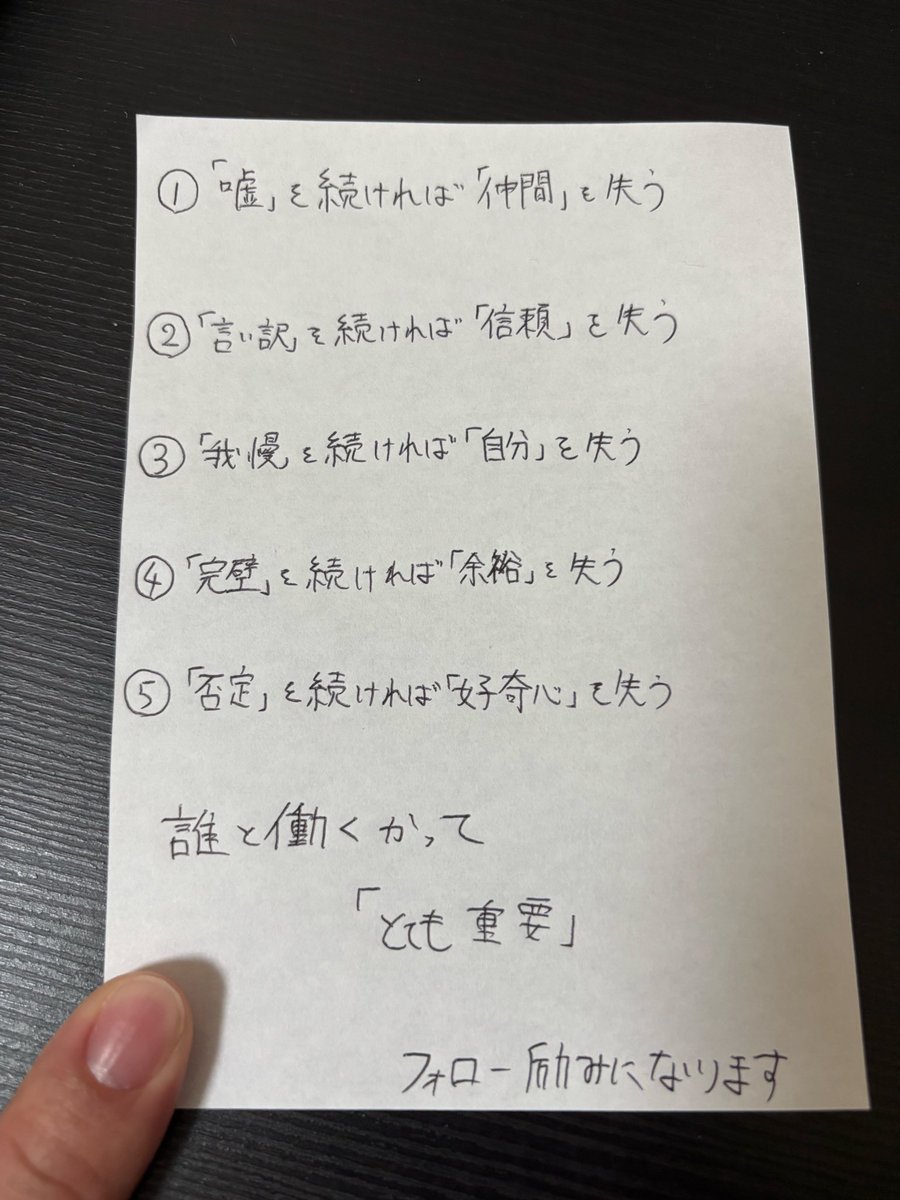 ①「嘘」を続ければ「仲間」を失う
②「言い訳」を続ければ「信頼」を失う
③「我慢」を続ければ「自分」を失う
④「完璧」を続ければ「余裕」を失う
⑤「否定」を続ければ「好奇心」を失う
誰と働くかって
「とても重要」
フォロー励みになります